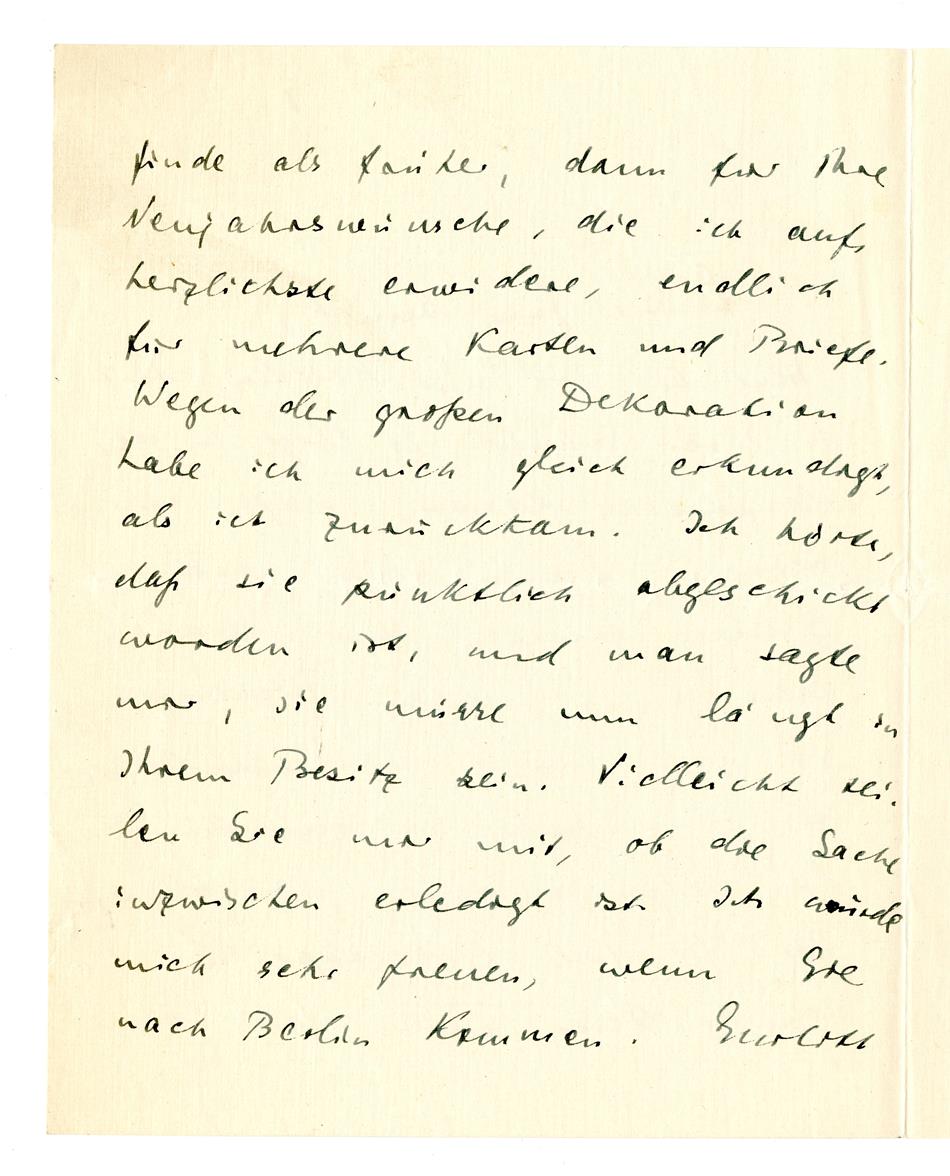 finde als früher, dann für Ihre
Neujahrswünsche, die ich aufs
herzlichste erwidere, endlich
für mehrere Karten und Briefe.
Wegen der großen Dekoration
habe ich mich gleich erkundigt,
als ich zurückkam. Ich hörte,
daß sie pünktlich abgeschickt
worden ist, und man sagte
mir, sie müsse nun längst in
Ihrem Besitz sein. Vielleicht tei-
len Sie mir mit, ob die Sache
inzwischen erledigt ist. Ich würde
mich sehr freuen, wenn Sie
nach Berlin kommen.